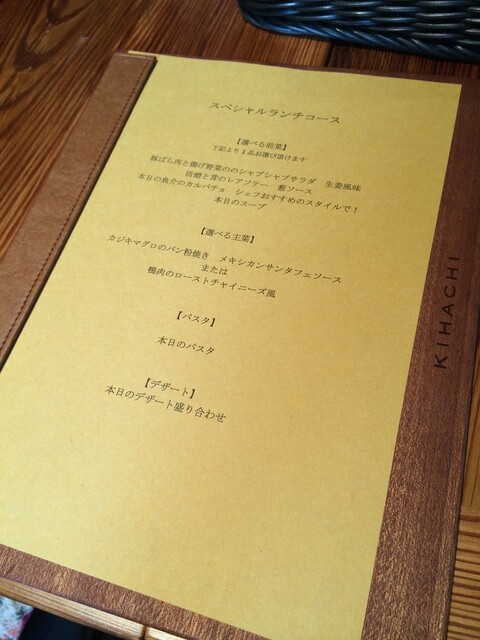 スペシャルランチコース
【選べる前菜】
下記より1品お選び頂けます
豚ばら肉と揚げ野菜ののシャブシャブサラダ　生姜風味
活蛸と茸のレアソテー　葱ソース
本日の魚介のカルパチョ　シェフおすすめのスタイルで！
本日のスープ
【選べる主菜】
カジキマグロのパン粉焼き　メキシカンサンタフェソース
または
鴨肉のローストチャイニーズ風
【パスタ】
本日のパスタ
【デザート】
本日のデザート盛り合わせ
KIHACHI